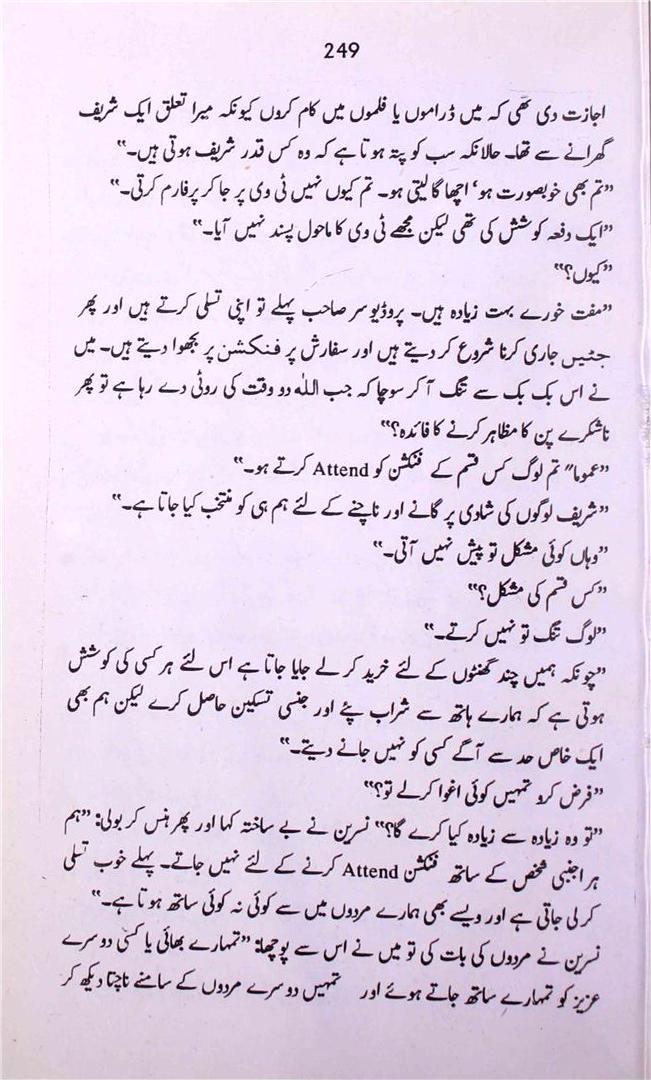 249
اجازت دی تھی کہ میں ڈراموں یا فلموں میں کام کروں کیونکہ میرا تعلق ایک شریف
گھرانے سے تھا۔ حالانکہ سب کو پتہ ہوتا ہے کہ وہ کس قدر شریف ہوتی ہیں۔"
"تم بھی خوبصورت ہو' اچھا گا لیتی ہو۔ تم کیوں نہیں ٹی وی پر جا کر پرفارم کرتی۔"
"ایک دفعہ کوشش کی تھی لیکن مجھے ٹی وی کا ماحول پسند نہیں آیا۔"
"کیوں؟"
"مفت خورے بہت زیادہ ہیں۔ پروڈیوسر صاحب پہلے تو اپنی تسلی کرتے ہیں اور پھر
چٹیں جاری کرنا شروع کر دیتے ہیں اور سفارش پر فنکشن پر بھجوا دیتے ہیں۔ میں
نے اس بک بک سے تنگ آ کر سوچا کہ جب اللہ دو وقت کی روٹی دے رہا ہے تو پھر
ناشکرے پن کا مظاہر کرنے کا فائدہ؟"
"عموما" تم لوگ کس قسم کے فنکشن کو Attend کرتے ہو۔"
"شریف لوگوں کی شادی پر گانے اور ناچنے کے لئے ہم ہی کو منتخب کیا جاتا ہے۔"
"وہاں کوئی مشکل تو پیش نہیں آتی۔"
"کس قسم کی مشکل؟"
"لوگ تنگ تو نہیں کرتے۔"
"چونکہ ہمیں چند گھنٹوں کے لئے خرید کر لے جایا جاتا ہے اس لئے ہر کسی کی کوشش
ہوتی ہے کہ ہمارے ہاتھ سے شراب پئے اور جنسی تسکین حاصل کرے لیکن ہم بھی
ایک خاص حد سے آگے کسی کو نہیں جانے دیتے۔"
"فرض کرو تمہیں کوئی اغوا کر لے تو؟"
"تو وہ زیادہ سے زیادہ کیا کرے گا؟" نسرین نے بے ساختہ کہا اور پھر ہنس کر بولی: "ہم
ہر اجنبی شخص کے ساتھ فنکشن Attend کرنے کے لئے نہیں جاتے۔ پہلے خوب تسلی
کر لی جاتی ہے اور ویسے بھی ہمارے مردوں میں سے کوئی نہ کوئی ساتھ ہوتا ہے۔"
نسرین نے مردوں کی بات کی تو میں نے اس سے پوچھا: "تمہارے بھائی یا کسی دوسرے
عزیز کو تمہارے ساتھ جاتے ہوئے اور تمہیں دوسرے مردوں کے سامنے ناچتا دیکھ کر